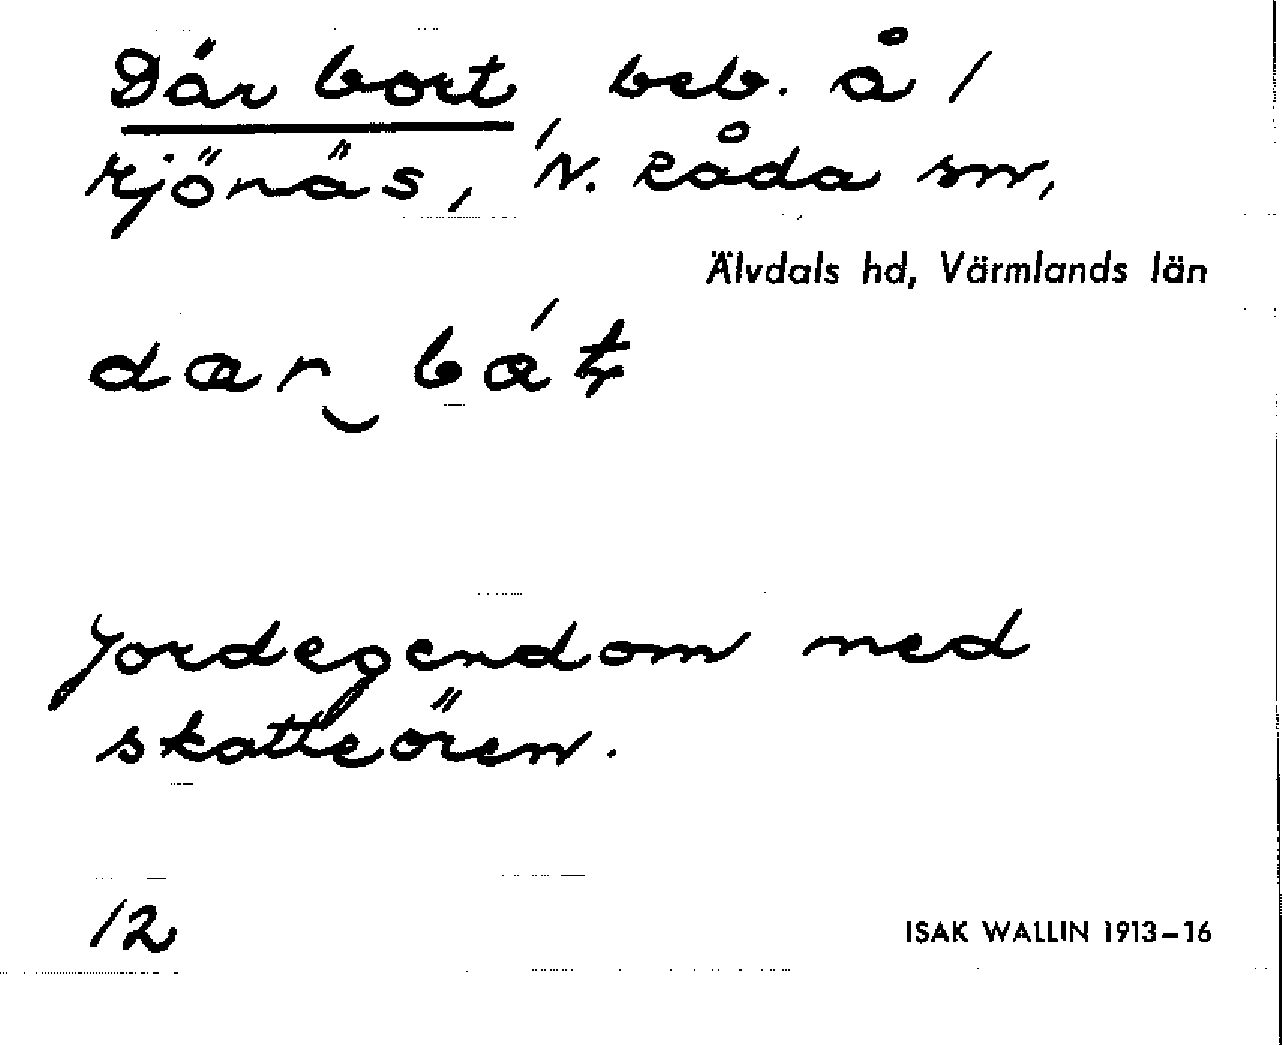 Där bort, beb. å 1
Kjönäs, N. Råda sn,
Älvdals hd, Värmlands län
Jordegendom med
skatteören.
12
ISAK WALLIN 1913–16